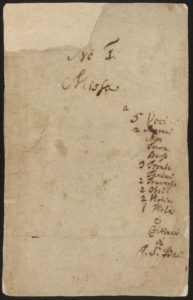 No I.
Missa
a
5 Voci
2 Soprani
Alto
Tenore
Basso
3 Trombe
Tamburi
2 Traversi
2 Oboi
2 Violini
1 Viola
e
Continuo
di
J. S. Bach